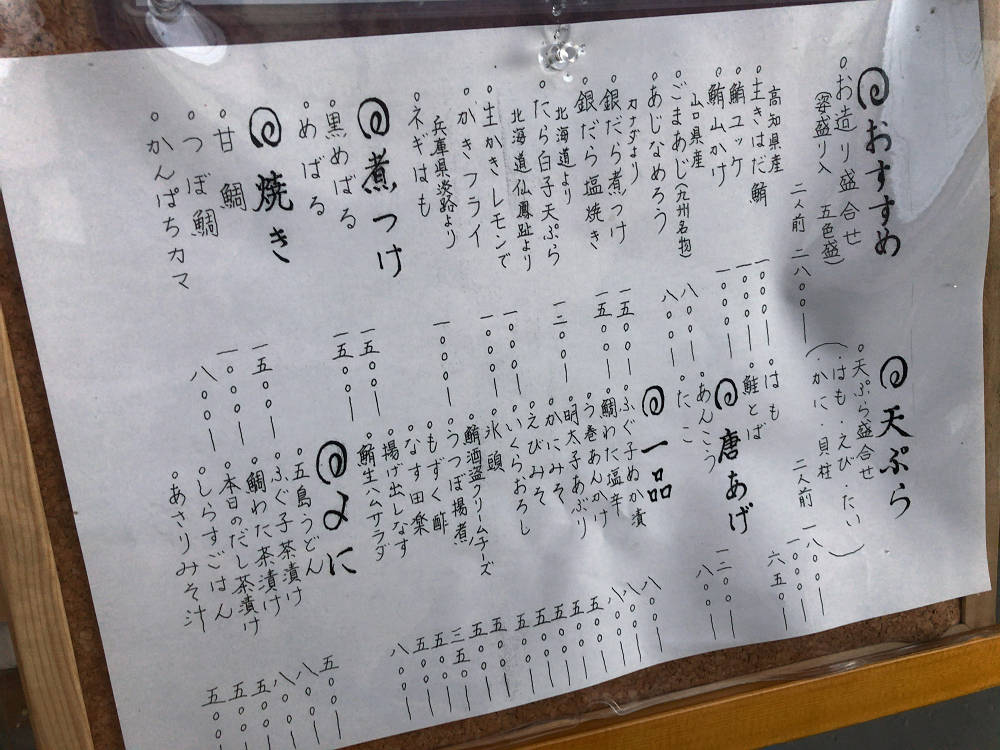 おすすめ
お造り盛合せ
(姿盛り入 五色盛)
二人前 二八〇〇ー
高知県産
生きはだ鮪 一〇〇〇ー
鮪ユッケ 一〇〇〇ー
鮪山かけ 一〇〇〇ー
山口県産
ごまあじ(九州名物) 八〇〇ー
あじなめろう 八〇〇ー
カナダより
銀だら煮つけ 一五〇〇ー
銀だら塩焼き 一五〇〇ー
北海道より
たら白子天ぷら 一二〇〇ー
北海道仙鳳趾より
生かきレモンで 一〇〇〇ー
かきフライ 一〇〇〇ー
兵庫県淡路より
ネギはも 一〇〇〇ー
煮つけ
黒めばる 一五〇〇ー
めばる 一五〇〇ー
焼き
甘鯛 一五〇〇ー
つぼ鯛 一〇〇〇ー
かんぱちカマ 八〇〇ー
天ぷら
天ぷら盛合せ
(・はも・えび・たい)
(・かに・貝柱)
二人前 一八〇〇ー
はも 一〇〇〇ー
鮭とば 六五〇ー
唐あげ
あんこう 一二〇〇ー
たこ 八〇〇ー
一品
ふぐ子ぬか漬 八〇〇ー
鯛わた塩辛 八〇〇ー
う巻あんかけ 八〇〇ー
明太子あぶり 五〇〇ー
かにみそ 五〇〇ー
えびみそ 五〇〇ー
いくらおろし 五〇〇ー
氷頭 五〇〇ー
鮪酒盗クリームチーズ 五〇〇ー
うつぼ揚煮 五〇〇ー
もずく酢 三五〇ー
なす田楽 五〇〇ー
揚げ出しなす 五〇〇ー
鮪生ハムサラダ 八〇〇ー
〆に
五島うどん 五〇〇ー
ふぐ子茶漬け 八〇〇ー
鯛わた茶漬け 八〇〇ー
本日のだし茶漬け 五〇〇ー
しらすごはん 五〇〇ー
あさりみそ汁 五〇〇ー